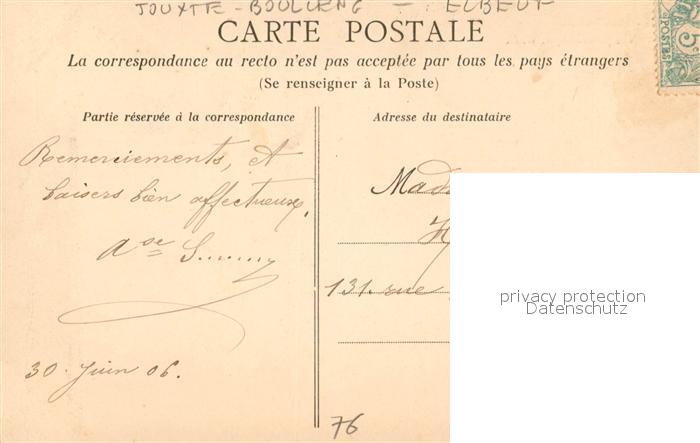 JOUXTE-BOULLENG - : ELBEUF
CARTE POSTALE
La correspondance au recto n'est pas acceptée par tous les pays étrangers
(Se renseigner à la Poste)
Partie réservée à la correspondance
Remerciements, et
baisers bien affectueux.
30 Juin 06.
Adresse du destinataire
131. rue
privacy protection
Datenschutz
76
5
POSTES